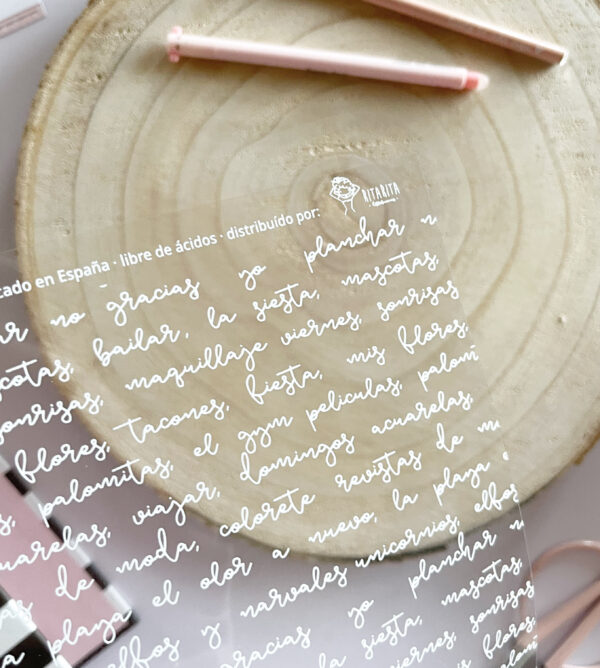 RITARITA
cado en España · libre de ácidos · distribuído por:
no gracias yo planchar
bailar, la siesta, mascotas,
sonrisas, maquillaje viernes, sonrisas
flores, tacones, fiesta, mis flores,
palomitas, el gym peliculas,
viajar, domingos acuarelas,
de moda, colorete revistas de
playa el olor a nuevo, la playa
elfos y narvales unicornios, elfos
gracias yo planchar
la siesta, mascotas
viernes, sonrisas
flores,